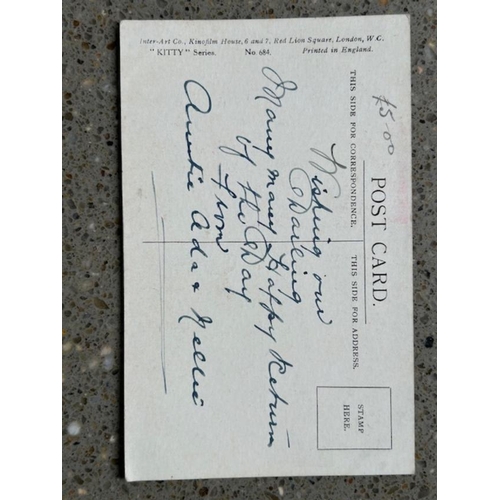 Inter-Art Co., Kinofilm House, 6 and 7, Red Lion Square, London, W.C.
"KITTY" Series. No 684. Printed in England.
£5-00
POST CARD.
THIS SIDE FOR CORRESPONDENCE.
THIS SIDE FOR ADDRESS.
STAMP
HERE.
Wishing our
Darling
Many many Happy Return
of the Day
From
Auntie Ada & Nellie